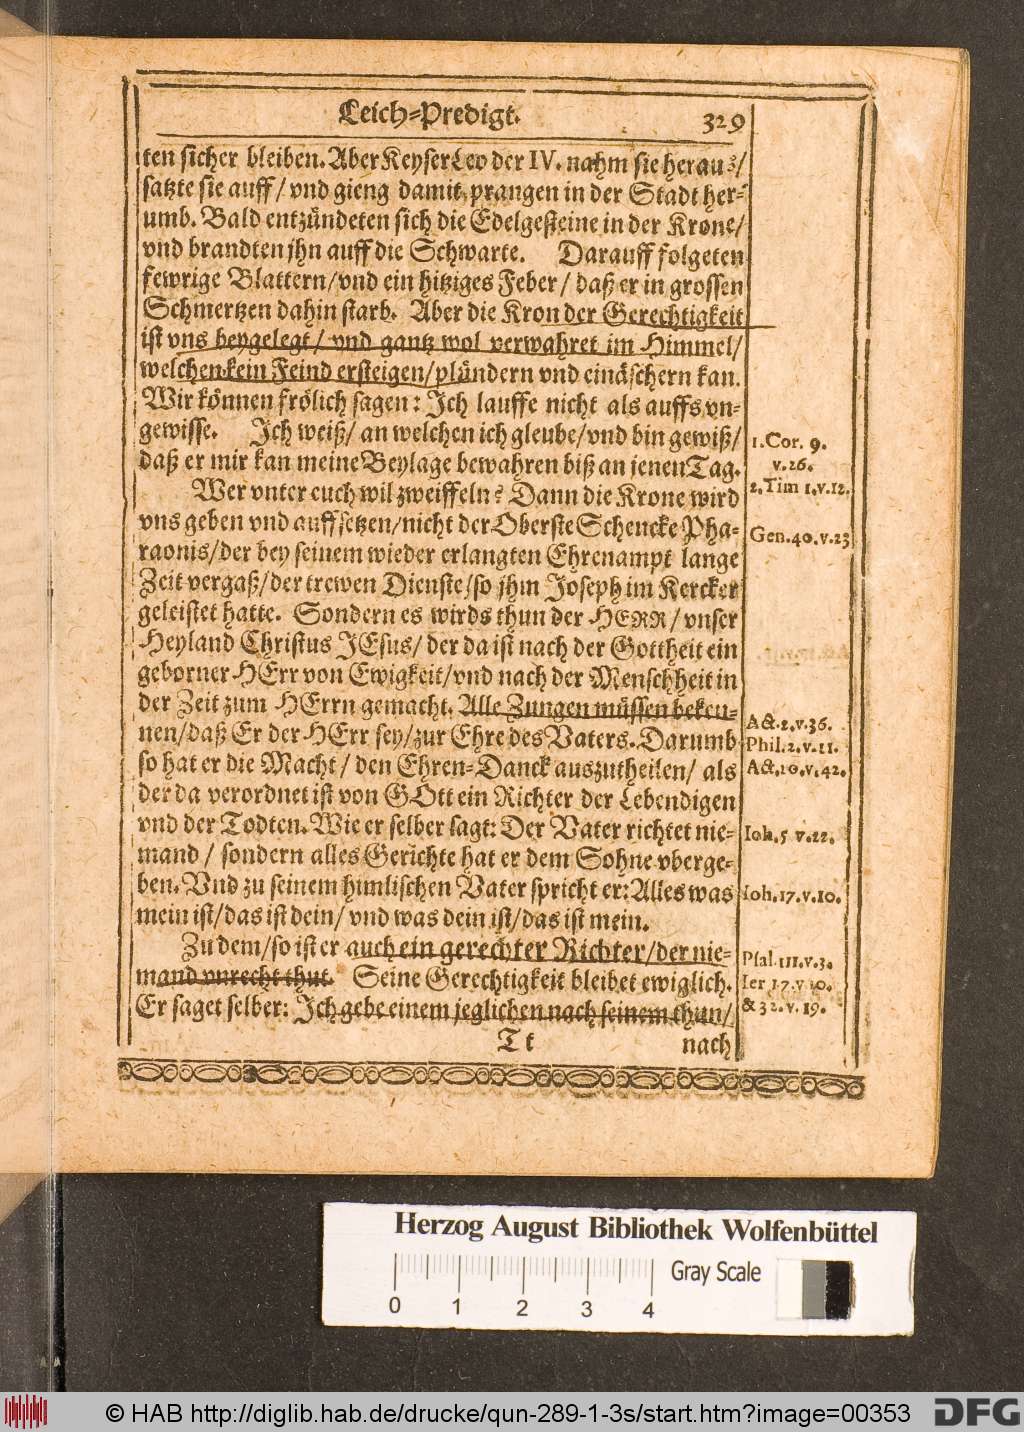 Leich-Predigt.
329
ten sicher bleiben. Aber Keyser Leo der IV. nahm sie heraus/
satzte sie auff/ vnd gieng damit prangen in der Stadt her-
umb. Bald entzündeten sich die Edelgesteine in der Krone/
vnd brandten jhn auff die Schwarte. Darauff folgeten
fewrige Blattern/ vnd ein hitziges Feber/ daß er in grossen
Schmertzen dahin starb. Aber die Kron der Gerechtigkeit
ist vns beygelegt/ vnd gantz wol verwahret im Himmel/
welchen kein Feind ersteigen/ plündern vnd einäschern kan.
Wir können frölich sagen: Ich lauffe nicht als auffs vn-
gewisse. Ich weiß/ an welchen ich gleube/ vnd bin gewiß/
daß er mir kan meine Beylage bewahren biß an jenen Tag.
Wer vnter euch wil zweiffeln? Dann die Krone wird
vns geben vnd auffsetzen/ nicht der Oberste Schencke Pha-
raonis/ der bey seinem wieder erlangten Ehrenampt lange
Zeit vergaß/ der trewen Dienste/ so jhm Joseph im Kercker
geleistet hatte. Sondern es wirds thun der HERR/ vnser
Heyland Christus JEsus/ der da ist nach der Gottheit ein
geborner HErr von Ewigkeit/ vnd nach der Menschheit in
der Zeit zum HErrn gemacht. Alle Zungen müssen beken-
nen/ daß Er der HErr sey/ zur Ehre des Vaters. Darumb
so hat er die Macht/ den Ehren-Danck auszutheilen/ als
der da verordnet ist von GOtt ein Richter der Lebendigen
vnd der Todten. Wie er selber sagt: Der Vater richtet nie-
mand/ sondern alles Gerichte hat er dem Sohne vberge-
ben. Vnd zu seinem himlischen Vater spricht er: Alles was
mein ist/ das ist dein/ vnd was dein ist/ das ist mein.
Zu dem/ so ist er auch ein gerechter Richter/ der nie-
mand vnrecht thut. Seine Gerechtigkeit bleibet ewiglich.
Er saget selber: Ich gebe einem jeglichen nach seinem thun/
Tt
nach
1. Cor. 9.
v. 26.
2. Tim 1. v. 12.
Gen. 40. v. 23
Act. 2. v. 36.
Phil. 2. v. 11.
Act. 10. v. 42.
Ioh. 5 v. 22.
Ioh. 17. v. 10.
Psal. 111. v. 3.
Ier 17. v 10.
& 32. v. 19.
Herzog August Bibliothek Wolfenbüttel
0 1 2 3 4
Gray Scale
© HAB http://diglib.hab.de/drucke/qun-289-1-3s/start.htm?image=00353
DFG